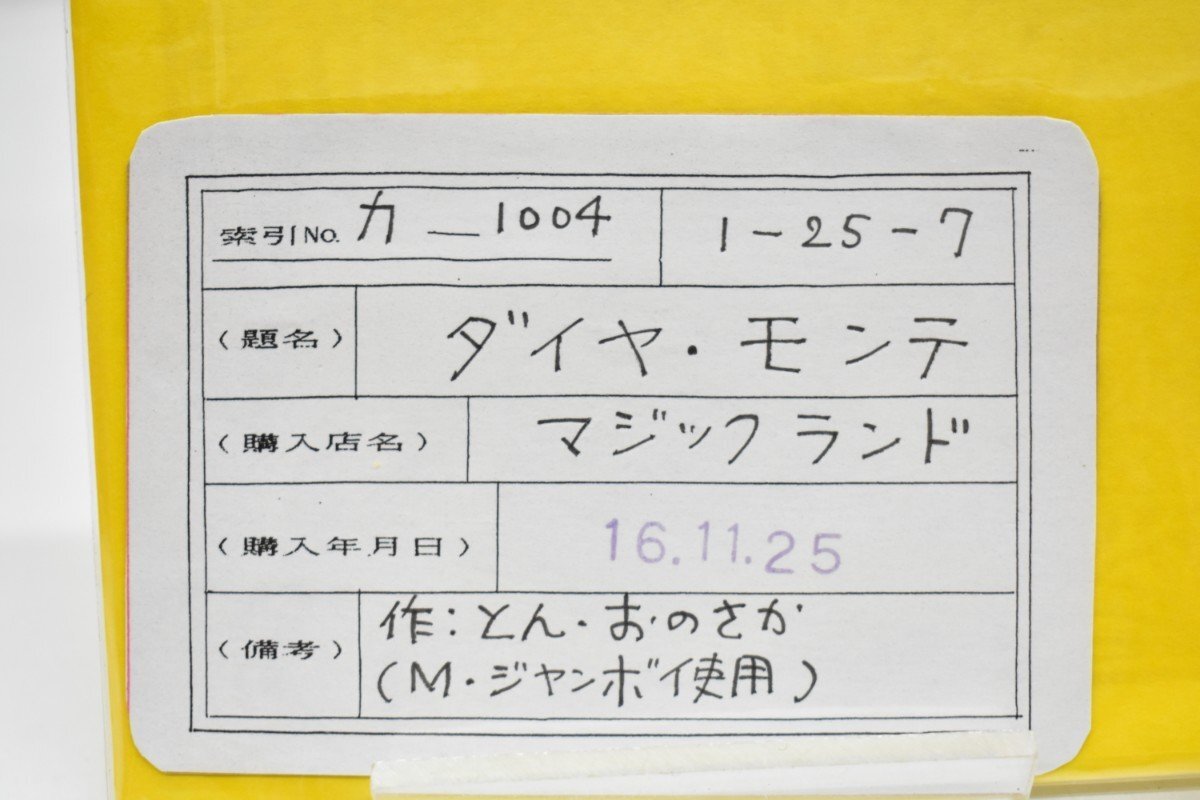 索引No. カ — 1004
1-25-7
(題名) ダイヤ・モンテ
(購入店名) マジックランド
(購入年月日) 16.11.25
(備考) 作:とん・おのさか
(M・ジャンボイ使用)